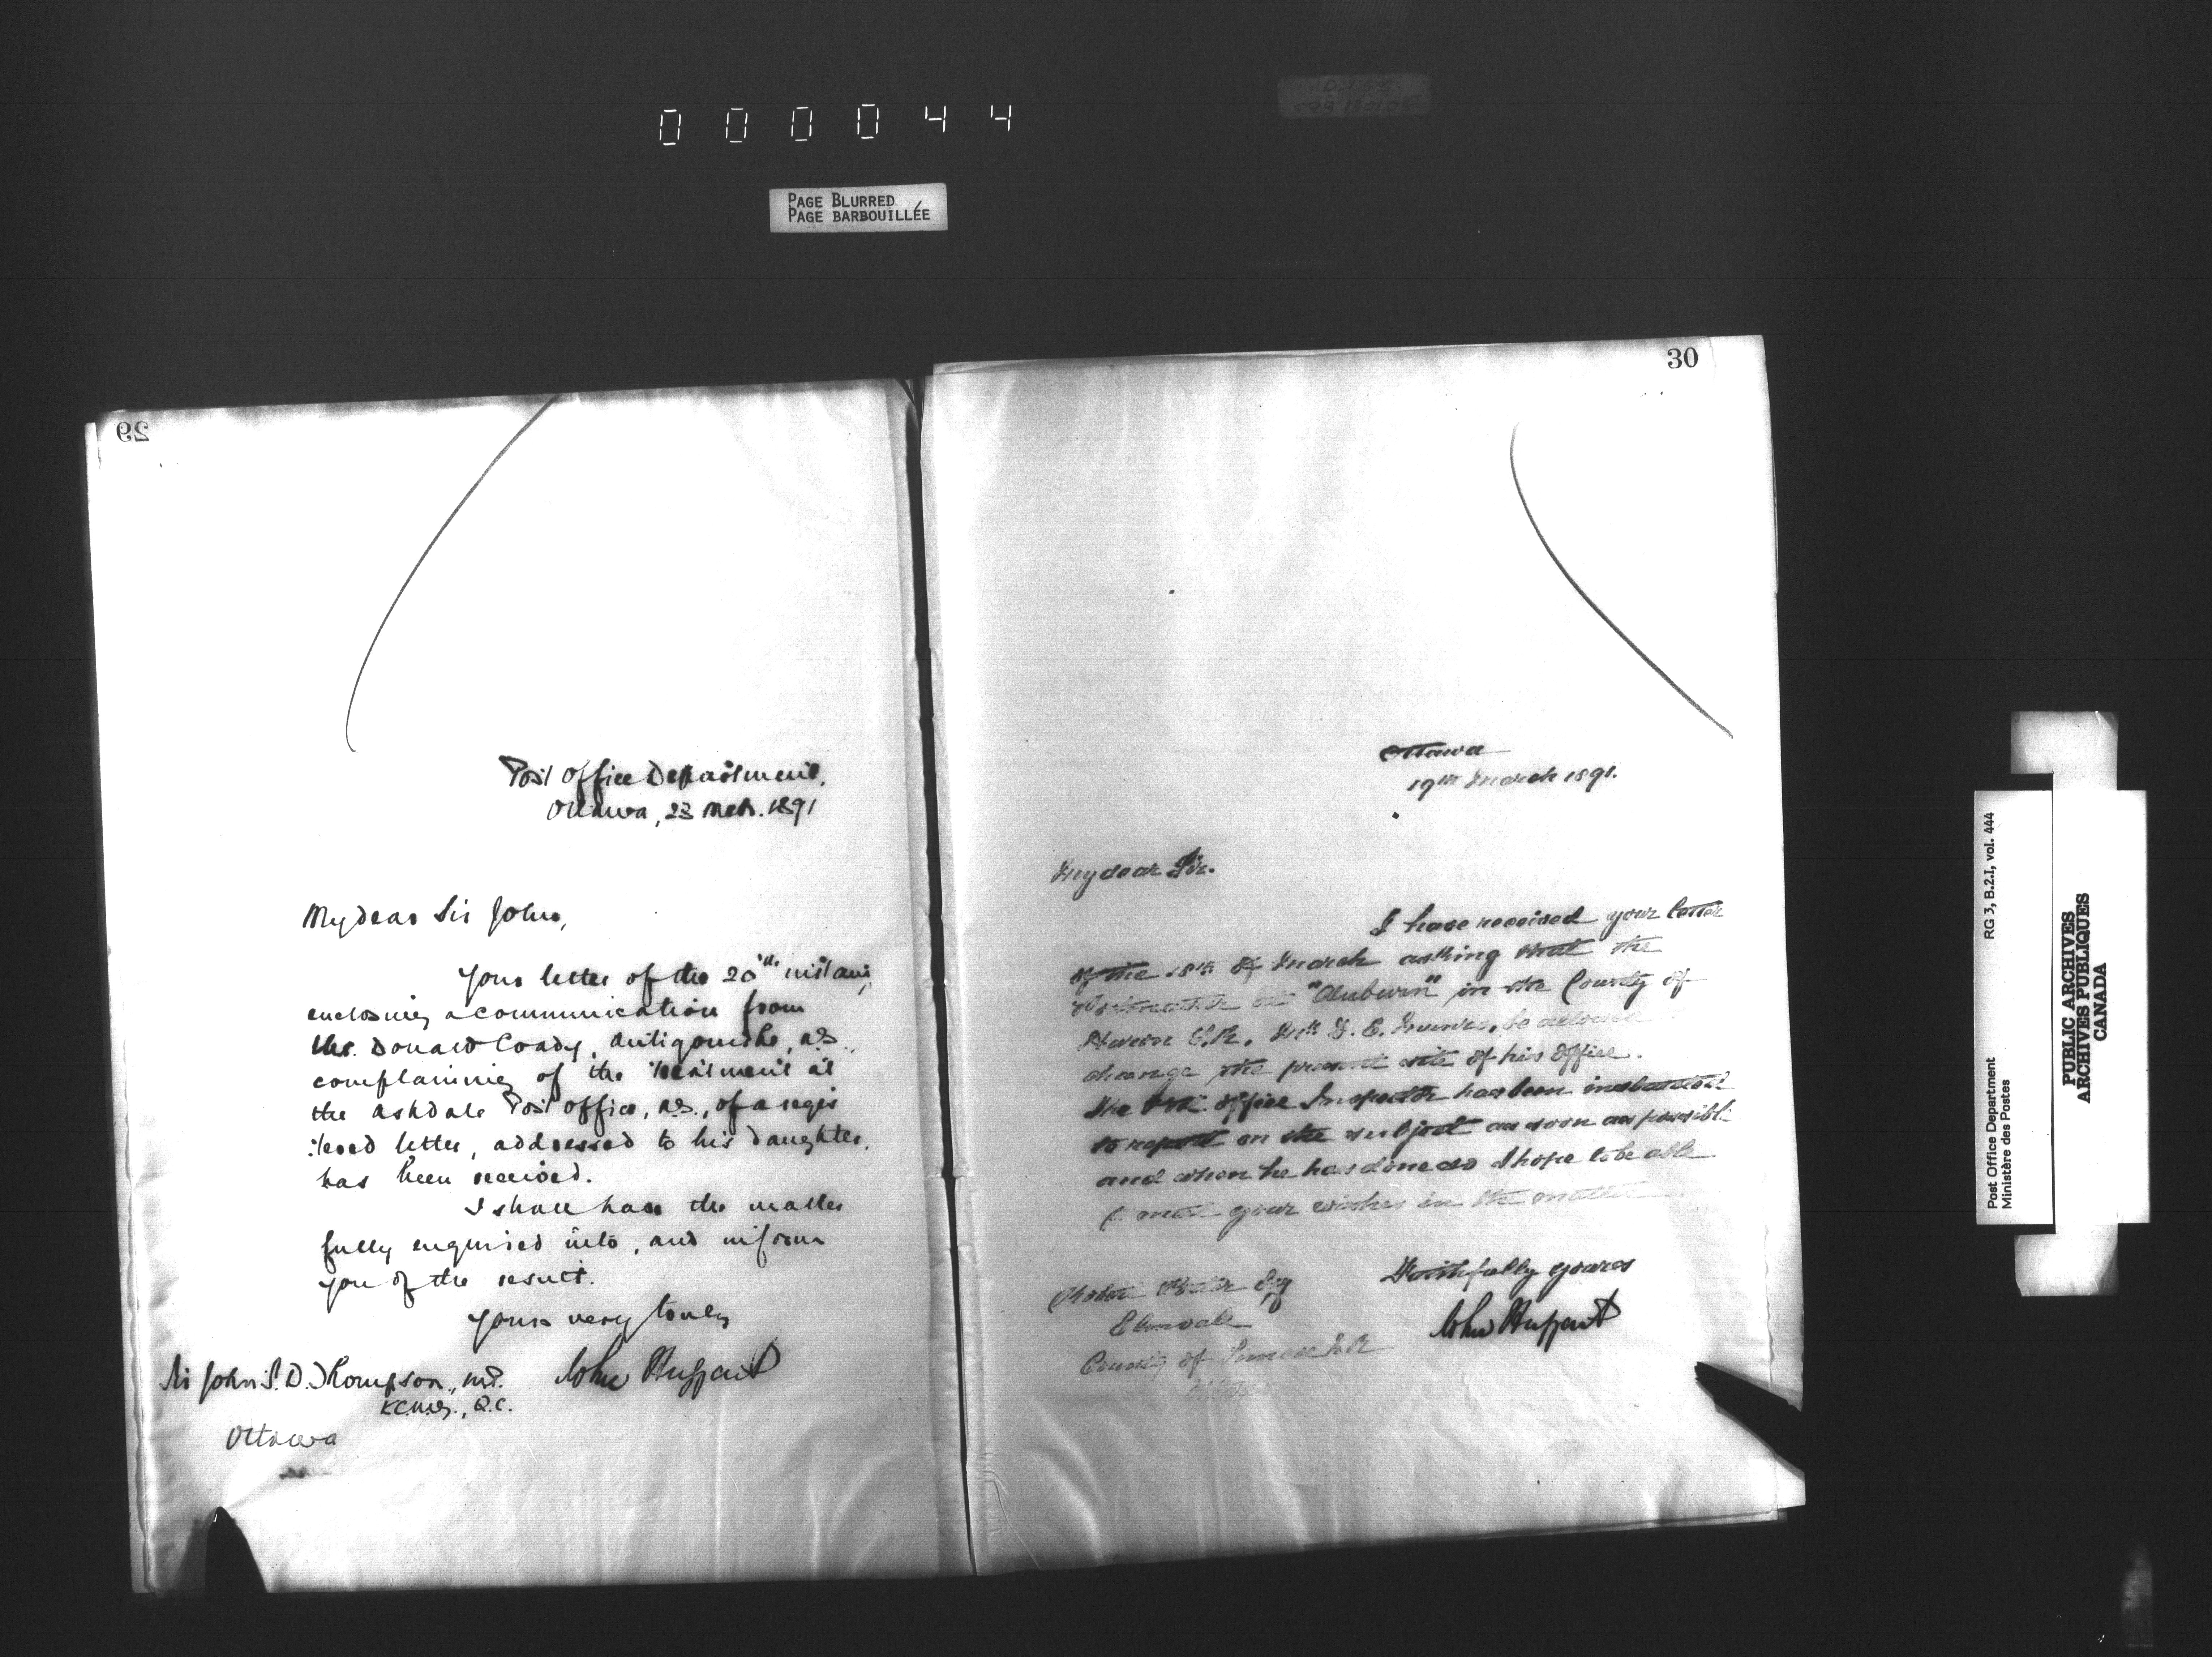 000044
PAGE BLURRED
PAGE BARBOUILLÉE
29
Post Office Department,
Ottawa, 23 Mch. 1891
My dear Sir John,
Your letter of the 20th instant,
enclosing a communication from
Mr. Donald Coady, Antigonishe, N.S.,
complaining of the treatment at
the Ashdale Post office, N.S., of a regis
tered letter, addressed to his daughter,
has been received.
I shall have the matter
fully enquired into, and inform
you of the result.
Yours very truly
John Haggart
Sir John S. D. Thompson, M.P.
K.C.M.G., Q.C.
Ottawa
30
Ottawa
19th March 1891.
My dear Sir.
I have received your letter
of the 18th of March asking that the
Postmaster at "Auburn" in the County of
Huron E.R. be allowed
change the present site of his office.
The Post office Inspector has been instructed
to report on the subject as soon as possible
and when he has done so I hope to be able
to meet your wishes in the matter
Faithfully yours
John Haggart
Esq
Elmvale
County of Simcoe N.R.
Post Office Department
Ministère des Postes
RG 3, B.2.I, vol. 444
PUBLIC ARCHIVES
ARCHIVES PUBLIQUES
CANADA